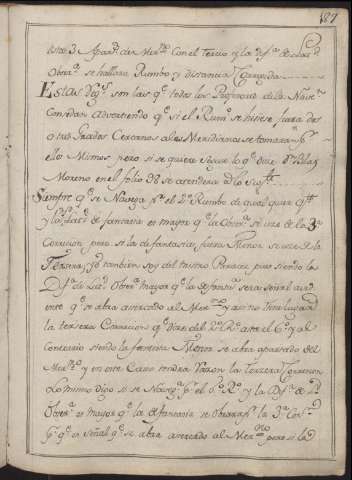 187
estas 3 Apartₛ de Merⁿᵒ Con el Tercio y la Dfᵃ de Latᵈ
Obserᵃ se hallara Rumbo y distancia Corregida
Estas Regˢ son las qᵉ todos los Profesores de la Nauteᵃ
Considan Advertiendo qᵉ si el Rumᵒ se hisiese fuera dos
o tres Grados Cercanos a los Meridianos se tomaran pʳ
ellos Mismos, pero si se quiere seguir lo qᵉ dice Dⁿ Blas
Moreno en el folio 98 se atendera a lo sigᵗᵉ
Siempre qᵉ se Navega pʳ el 2º Rumbo de qualquier qᵗᵉ
y la Latᵈ de fantacia es mayor qᵉ la Obserᵃ se usa de la 3ᵃ
Corrección pero si la de fantasia fuera Menor se usa de la
Tersera, yo tambien soy del mismo Pareser pues siendo la
Dfᵃ de Latᵈ Obserᵃ mayor qᵉ la de fantᵃ sera señal evid
ente qᵉ se abra asercado al Merⁿᵒ y asi no tiene lugar
la tersera Correccion qᵉ dise del 2º Rº ante el 6º y al
Contrario siendo la fantacia Menor se abra apartado del
Merⁿᵒ y en este Caso tendra Razon la Tersera Correccion
Lo mismo digo si se Navegᵃ pʳ el 6º Rº y la Dfᵃ de Lᵈ
Obserᵃ es mayor qᵉ la de fantacia se Obrara pʳ la 3ᵃ Corⁿ
pʳ qᵉ es señal qᵉ se abra asercado al Merⁿᵒ pero si la